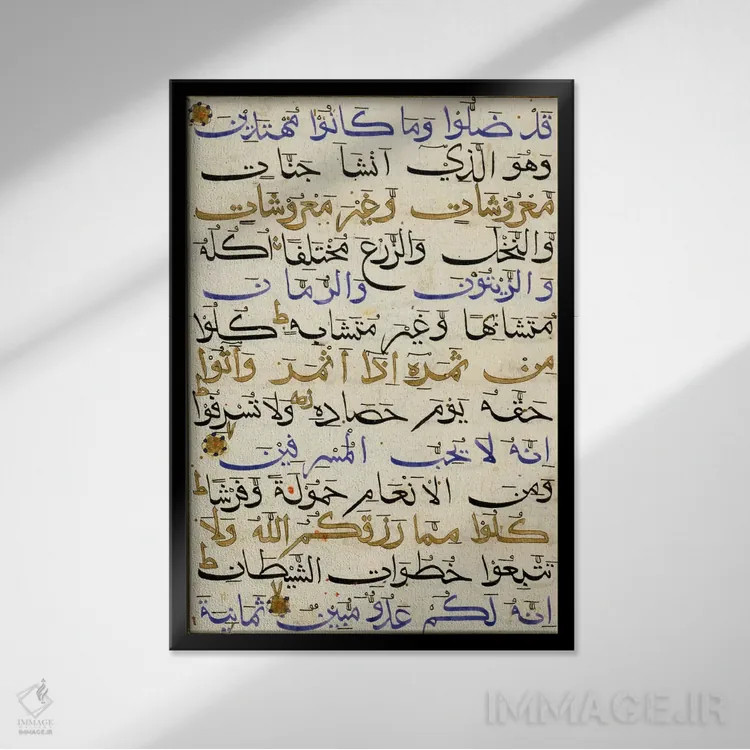 قَدْ ضَلُّوا وَمَا كَانُوا مُهْتَدِينَ
وَهُوَ الَّذِي أَنْشَأَ جَنَّاتٍ
مَعْرُوشَاتٍ وَغَيْرَ مَعْرُوشَاتٍ
وَالنَّخْلَ وَالزَّرْعَ مُخْتَلِفًا أُكُلُهُ
وَالزَّيْتُونَ وَالرُّمَّانَ
مُتَشَابِهًا وَغَيْرَ مُتَشَابِهٍ ط كُلُوا
مِنْ ثَمَرِهِ إِذَا أَثْمَرَ وَآتُوا
حَقَّهُ يَوْمَ حَصَادِهِ وَلَا تُسْرِفُوا ط
إِنَّهُ لَا يُحِبُّ الْمُسْرِفِينَ لا
وَمِنَ الْأَنْعَامِ حَمُولَةً وَفَرْشًا ط
كُلُوا مِمَّا رَزَقَكُمُ اللَّهُ وَلَا
تَتَّبِعُوا خُطُوَاتِ الشَّيْطَانِ ط
إِنَّهُ لَكُمْ عَدُوٌّ مُبِينٌ لا ثَمَانِيَةَ
IMMAGE
IMMAGE.IR
IMMAGE.IR